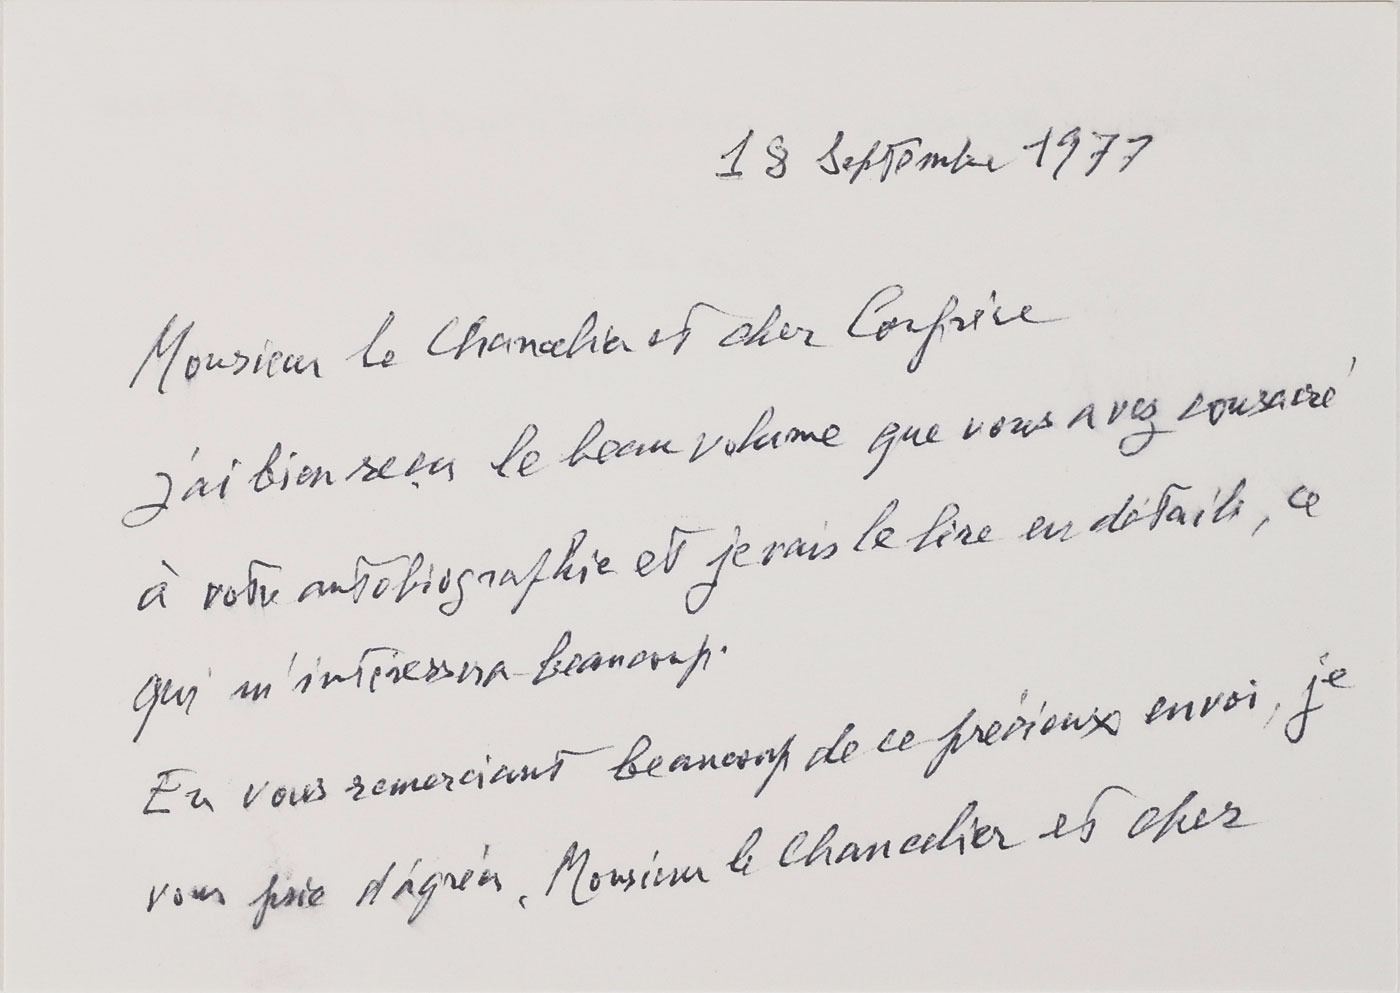 18 Septembre 1977
Monsieur le Chancelier et cher Confrère
j'ai bien reçu le beau volume que vous avez consacré
à votre autobiographie et je vais le lire en détails, ce
qui m'intéressera beaucoup.
En vous remerciant beaucoup de ce précieux envoi, je
vous prie d'agréer, Monsieur le Chancelier et cher